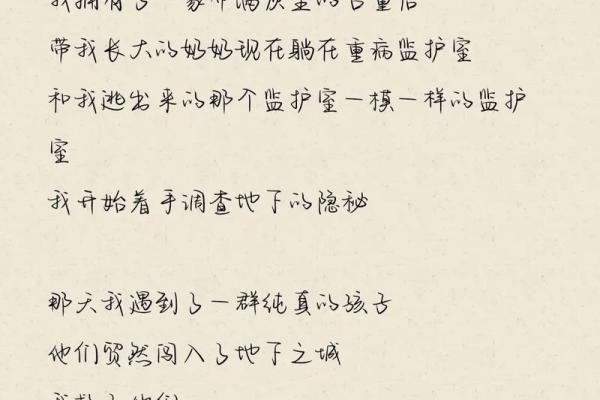 带我长大的奶奶现在躺在重病监护室
和我逃出来的那个监护室一模一样的监护
室
我开始着手调查地下的隐秘
那天我遇到了一群纯真的孩子
他们贸然闯入了地下之城